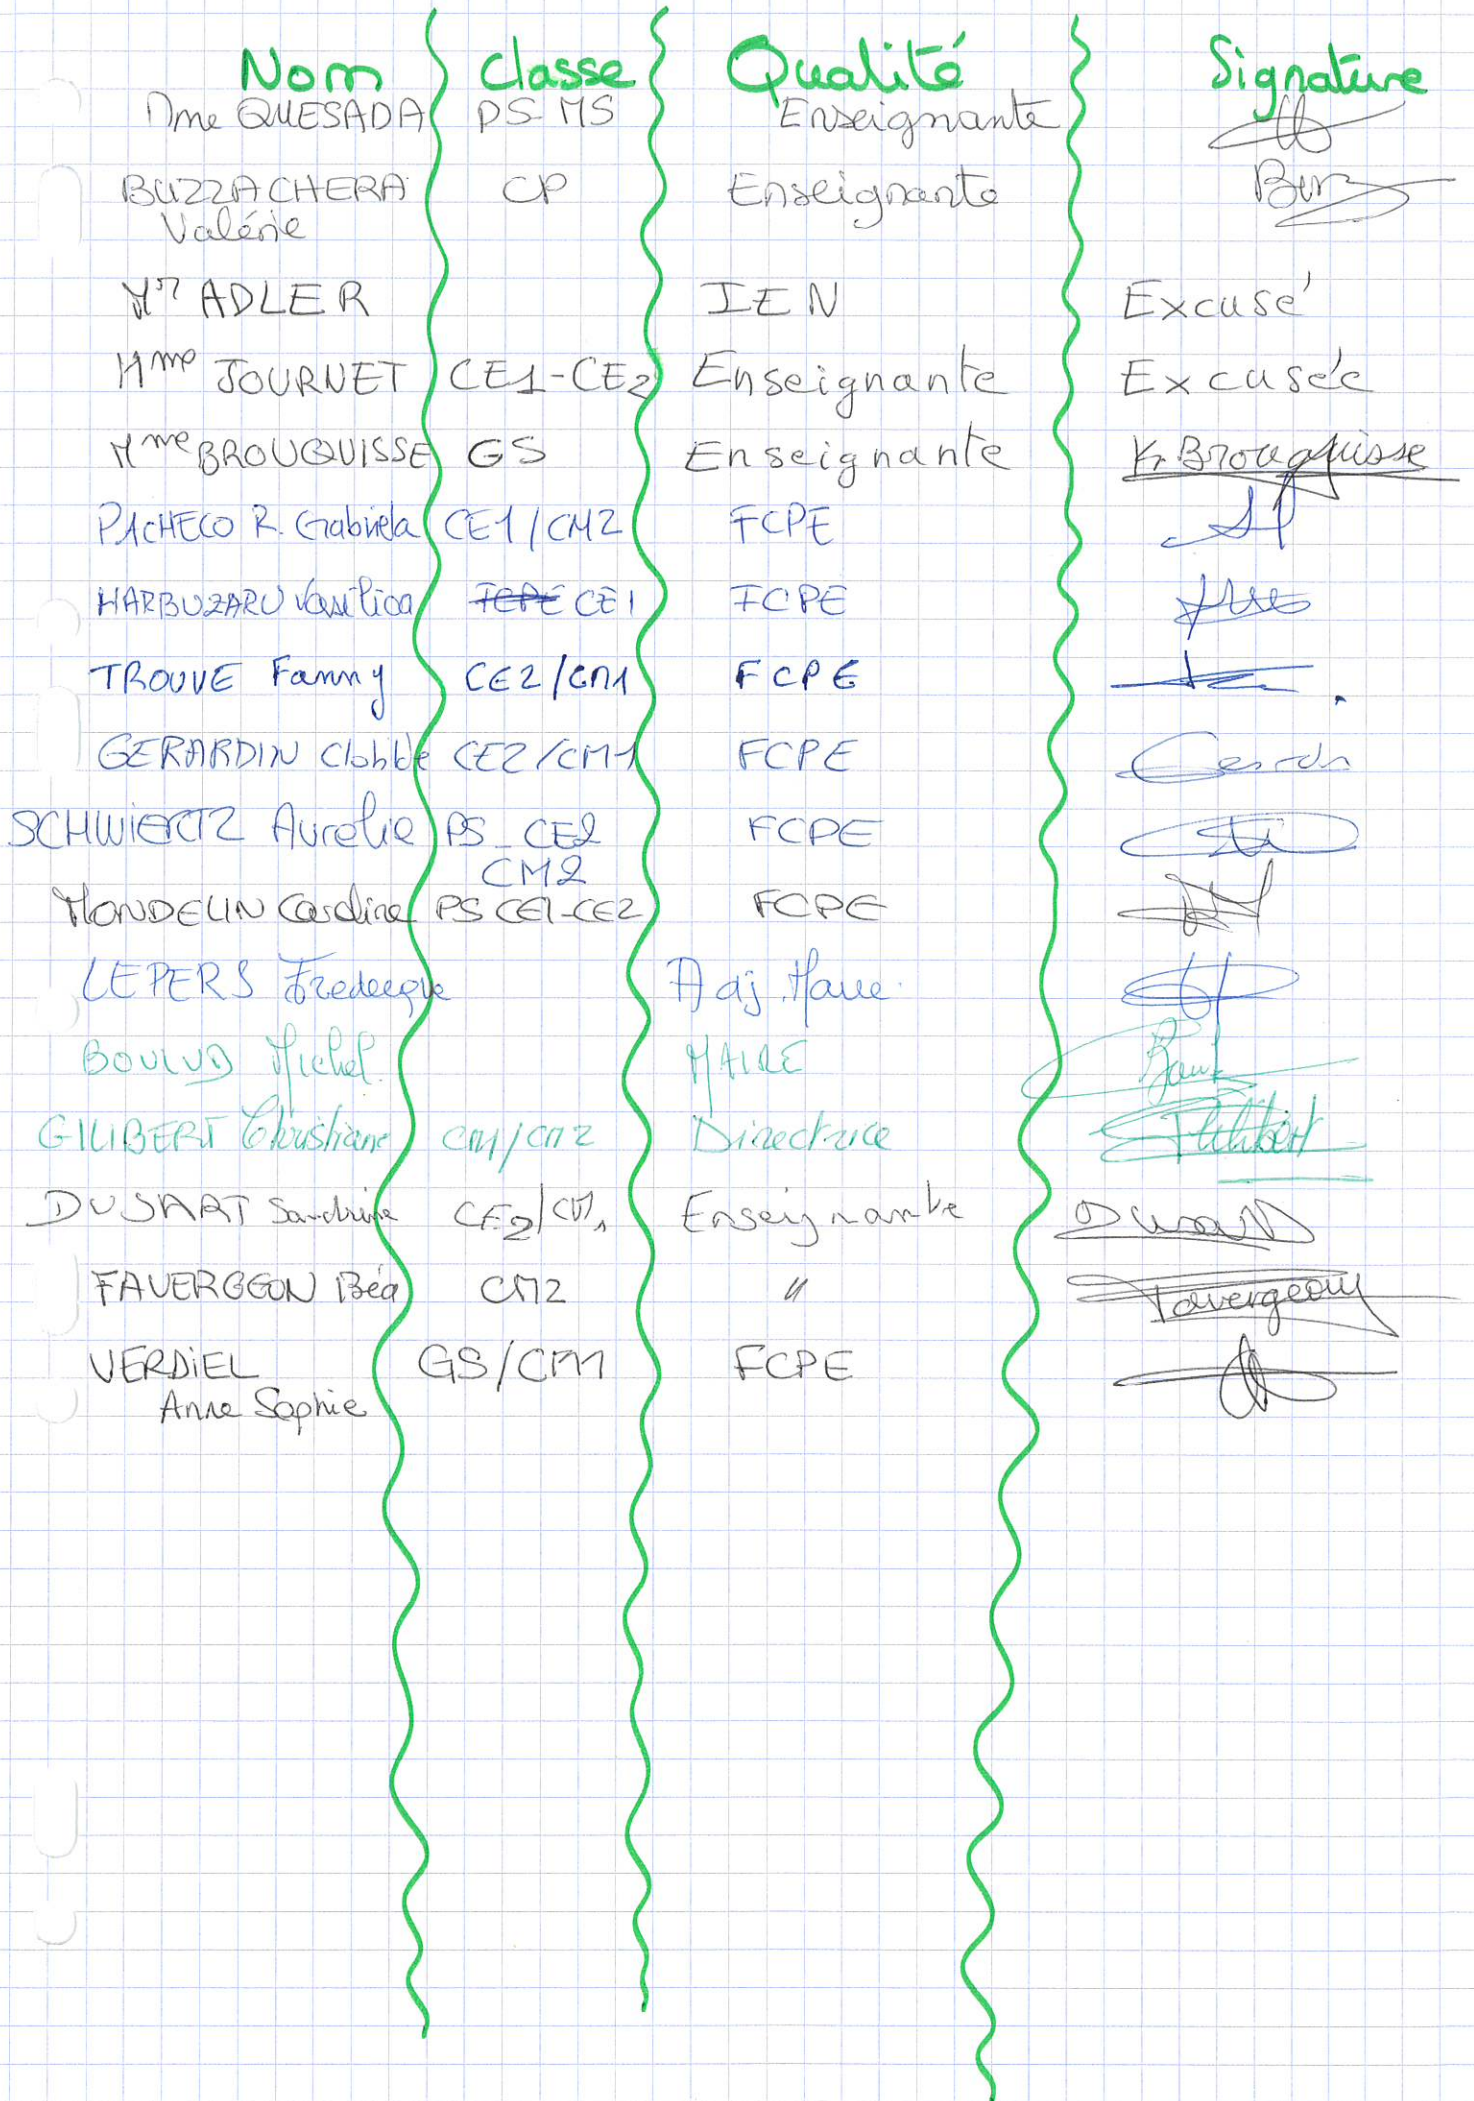 Nom Classe Qualité Signature
Mme QUESADA PS-MS Enseignante
BUZZACHERA CP Enseignante
Valérie
Mr ADLER IEN Excusé
Mme JOURNET CE1-CE2 Enseignante Excusée
Mme BROUQUISSE GS Enseignante K. Brouquisse
PACHECO R. Gabriela CE1/CM2 FCPE
HARBUZARU Vasilica FCPE CE1 FCPE
TROUVE Fanny CE2/CM1 FCPE
GERARDIN CE2/CM1 FCPE
SCHWIERTZ Aurélie PS_CE2 FCPE
CM2
MONDELIN Caroline PS CE1-CE2 FCPE
LEPERS Adj. Maire
BOULUD Michel MAIRE
GILIBERT Christiane CM1/CM2 Directrice
DUSART Sandrine CE2/CM1 Enseignante
FAVERGEON Béa CM2 " Favergeon
VERDIEL GS/CM1 FCPE
Anne Sophie